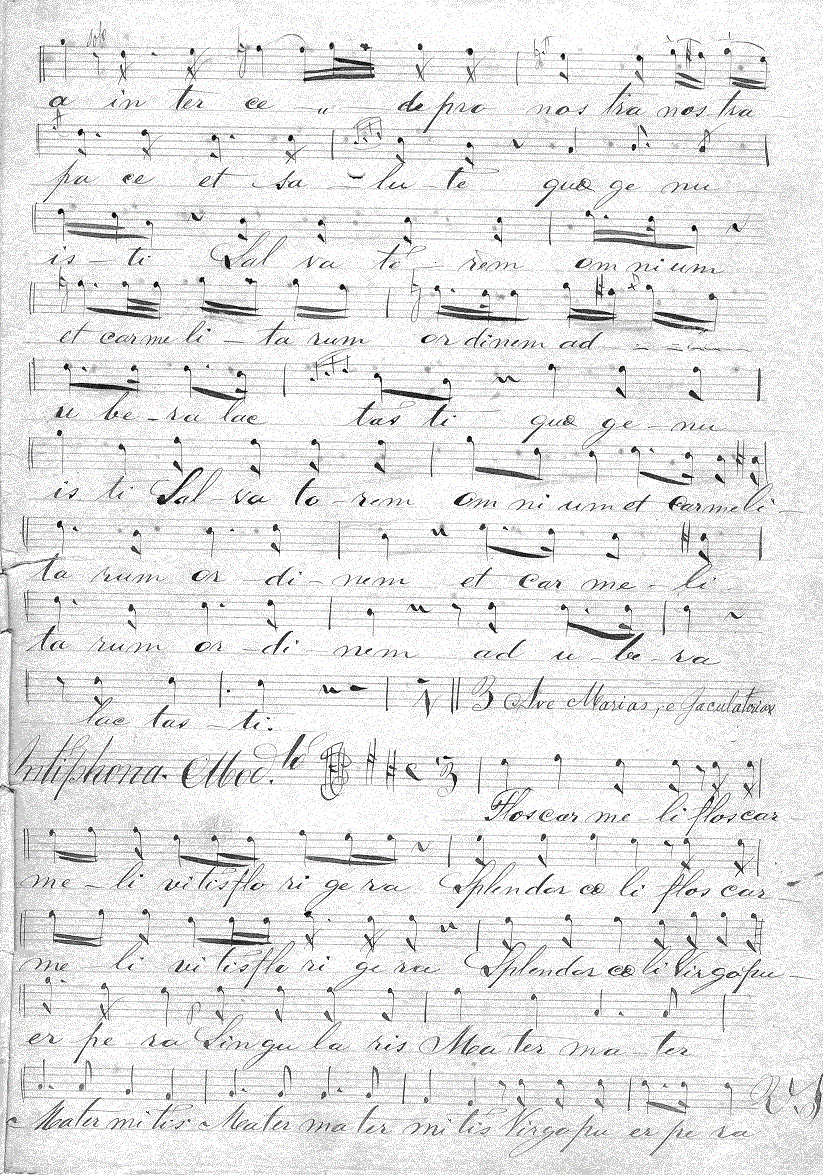 Solo
a in ter ce — „ — de pro nos tra nos tra
pa ce et sa — lu — te quæ ge nu
is — ti Sal va to — rem om ni um
et carme li — ta rum or dinem ad
u be — ra lac tas ti quæ ge — nu
is ti Sal — va to — rem om ni um et carme li —
ta rum or — di — nem et car me — li
ta rum or — di — nem ad u — be — ra
lac tas — ti. 3 Ave Marias, e Jaculatoriæ
Antiphona. Mod.to C 3
Flos car me — li flos car —
me — li vitis flo ri ge ra Splendor cœ li flos car —
me — li vi tis flo ri ge ra Splendor cœ li Virgo pu —
er pe — ra Singu la ris Ma ter ma — ter
Mater mi tis Mater ma ter mi tis Virgo pu er pe ra